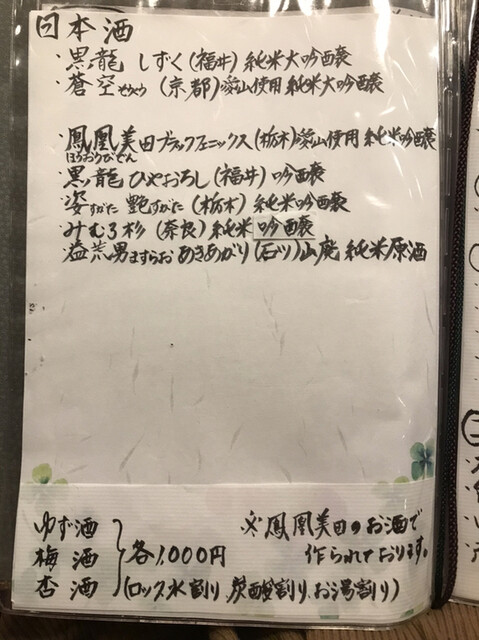 日本酒
・黒龍 しずく(福井)純米大吟醸
・蒼空 そうくう(京都)愛山使用 純米大吟醸
・鳳凰美田 ブラックフェニックス(栃木)愛山使用 純米吟醸
ほうおうびでん
・黒龍 ひやおろし(福井)吟醸
・姿すがた 艶すがた(栃木)純米吟醸
・みむろ杉(奈良)純米 吟醸
・益荒男ますらお あきあがり(石川)山廃 純米原酒
ゆず酒
梅酒
杏酒
各1,000円
(ロック、水割り 炭酸割り、お湯割り)
※鳳凰美田のお酒で
作られております。